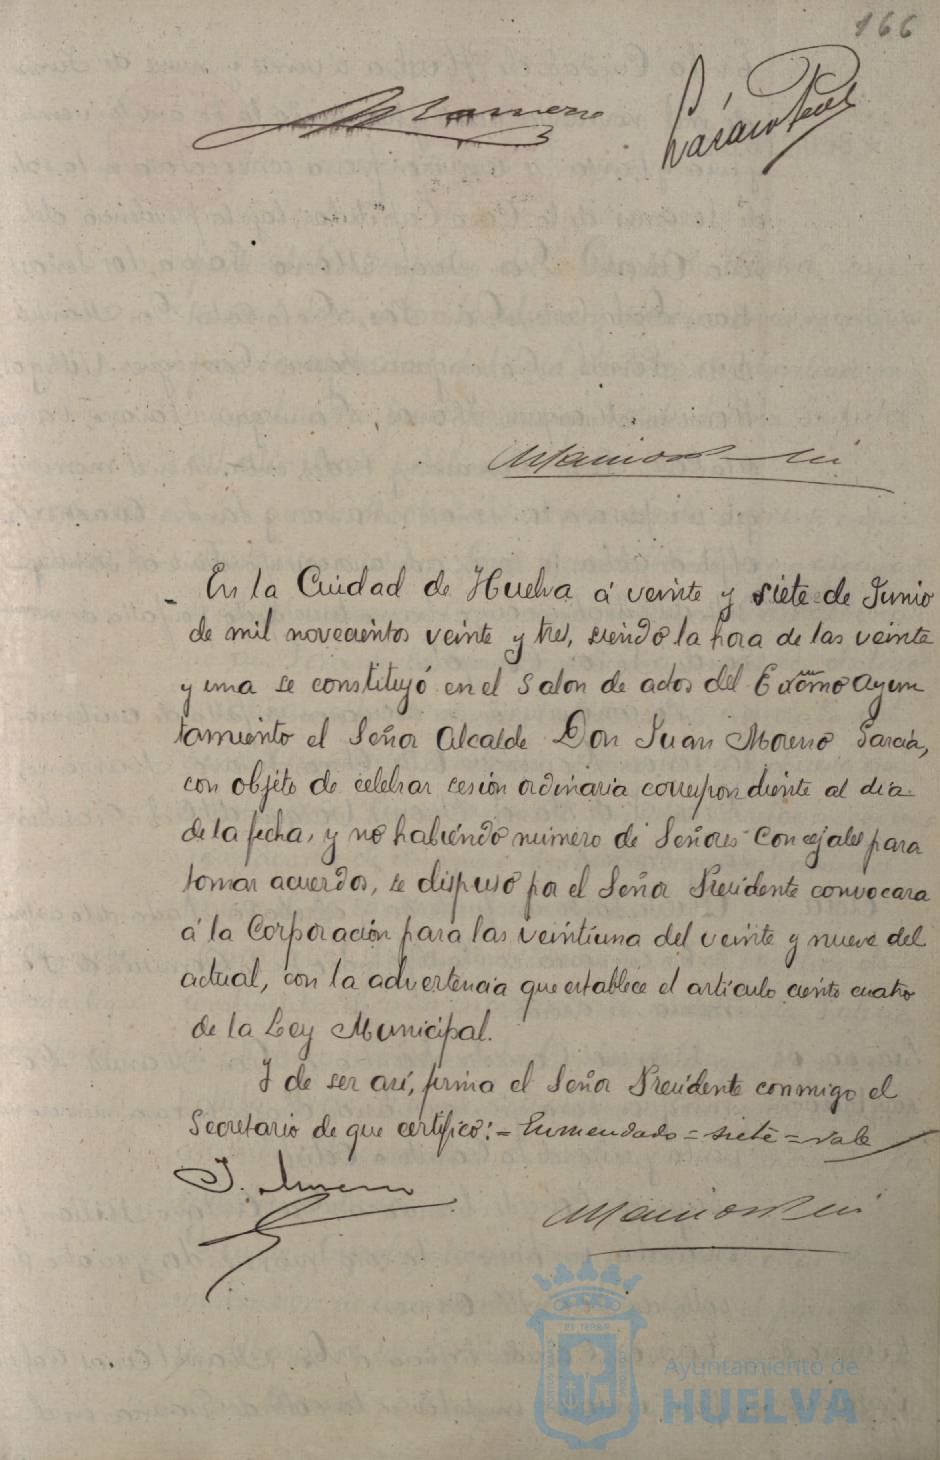 166
Lázaro Pérez
En la Ciudad de Huelva á veinte y siete de Junio
de mil novecientos veinte y tres, siendo la hora de las veinte
y una se constituyó en el Salon de actos del Excmo Ayun
tamiento el Señor Alcalde Don Juan Moreno García,
con objeto de celebrar sesión ordinaria correspondiente al día
de la fecha, y no habiendo número de Señores Concejales para
tomar acuerdos, se dispuso por el Señor Presidente convocara
á la Corporación para las veintiuna del veinte y nueve del
actual, con la advertencia que establece el artículo ciento cuatro
de la Ley Municipal.
Y de ser así, firma el Señor Presidente conmigo el
Secretario de que certifico:=Enmendado=siete=vale
J. Moreno
Ayuntamiento de
HUELVA